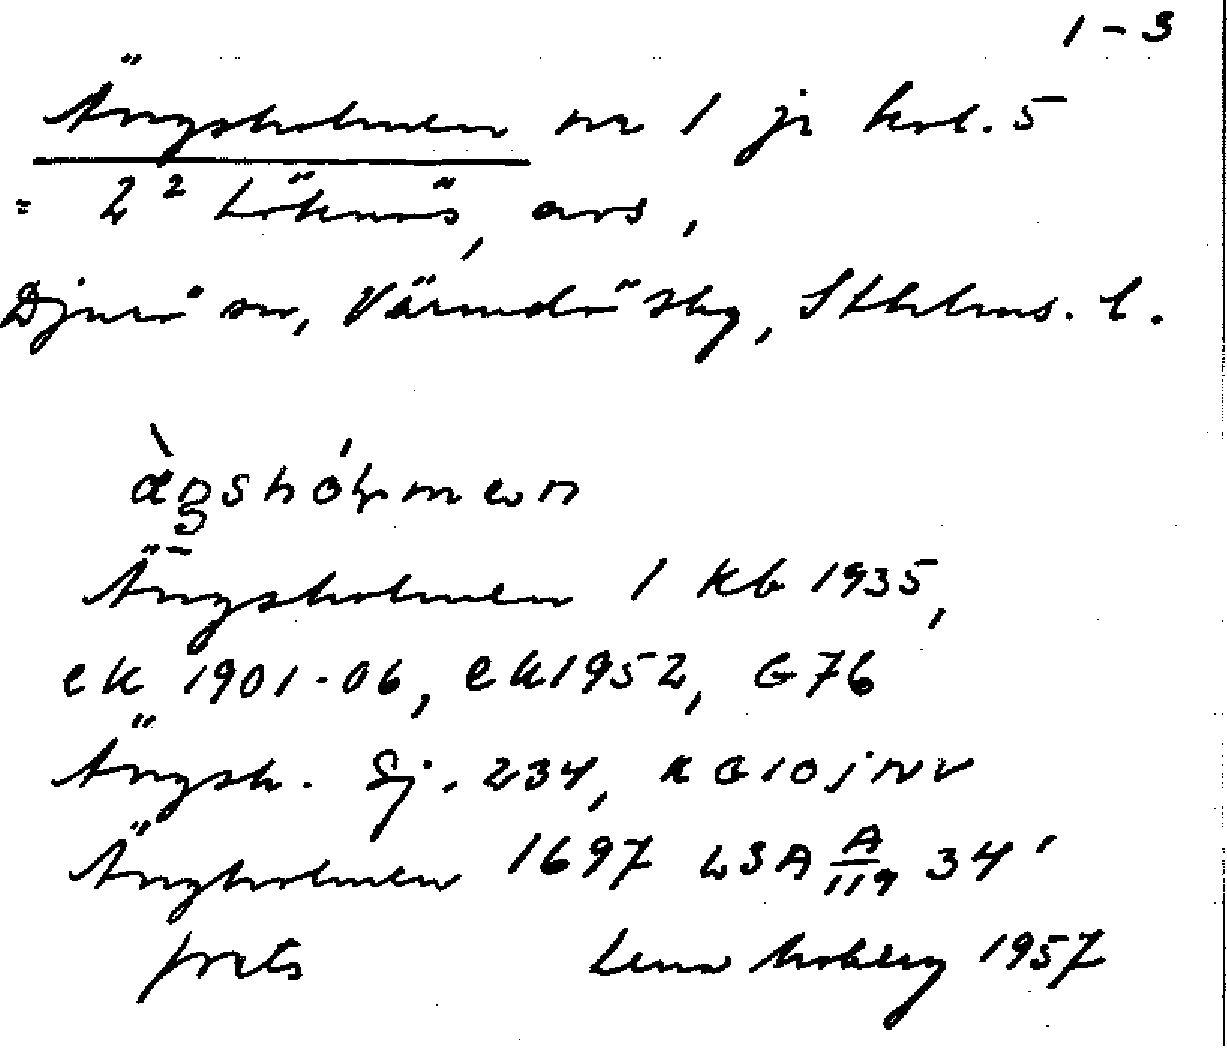 1-3
Ängsholmen nr 1 jr kol. 5
= 2² Löknäs, avs,
Djurö sn, Värmdö slg, Sthlms. l.
Ängsholmen 1 Kb 1935,
ek 1901-06, ek 1952, G76
Ängsh. Sj. 234, KG10jNV
Ängholmen 1697 LSA A/119 34'
forts Lena Moberg 1957